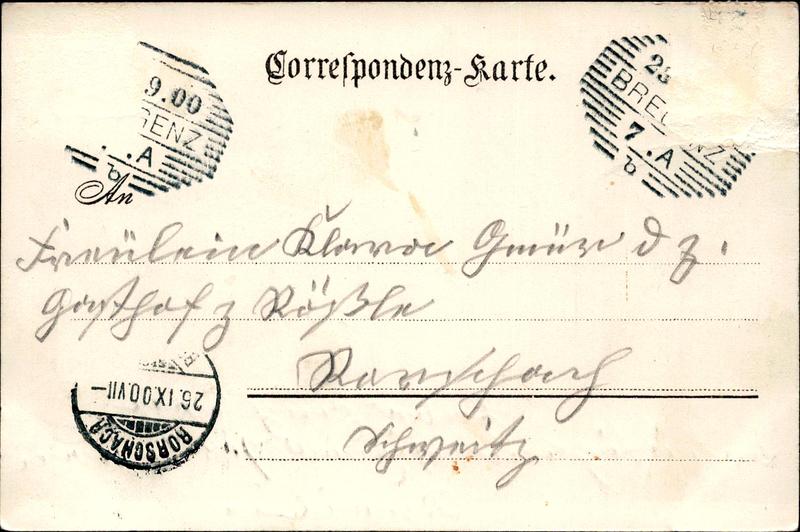 Correspondenz-Karte.
9.00
ENZ
.A
b
23
BREG
NZ
7.A
b
An
Fräulein Klara Gmür d z.
Gasthof z Rößle
Rorschach
Schweitz
26.IX.00.VII-
RORSCHACH